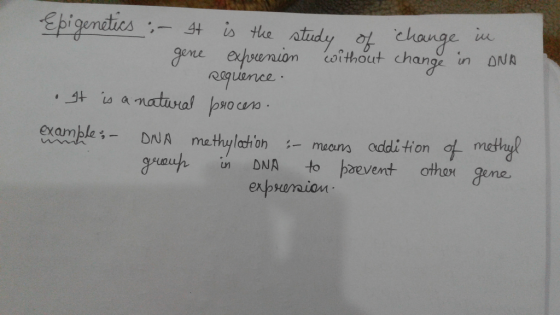 Epigenetics :- It is the study of change in
gene expression without change in DNA
sequence.
• It is a natural process.
example:- DNA methylation :- means addition of methyl
group in DNA to prevent other gene
expression.